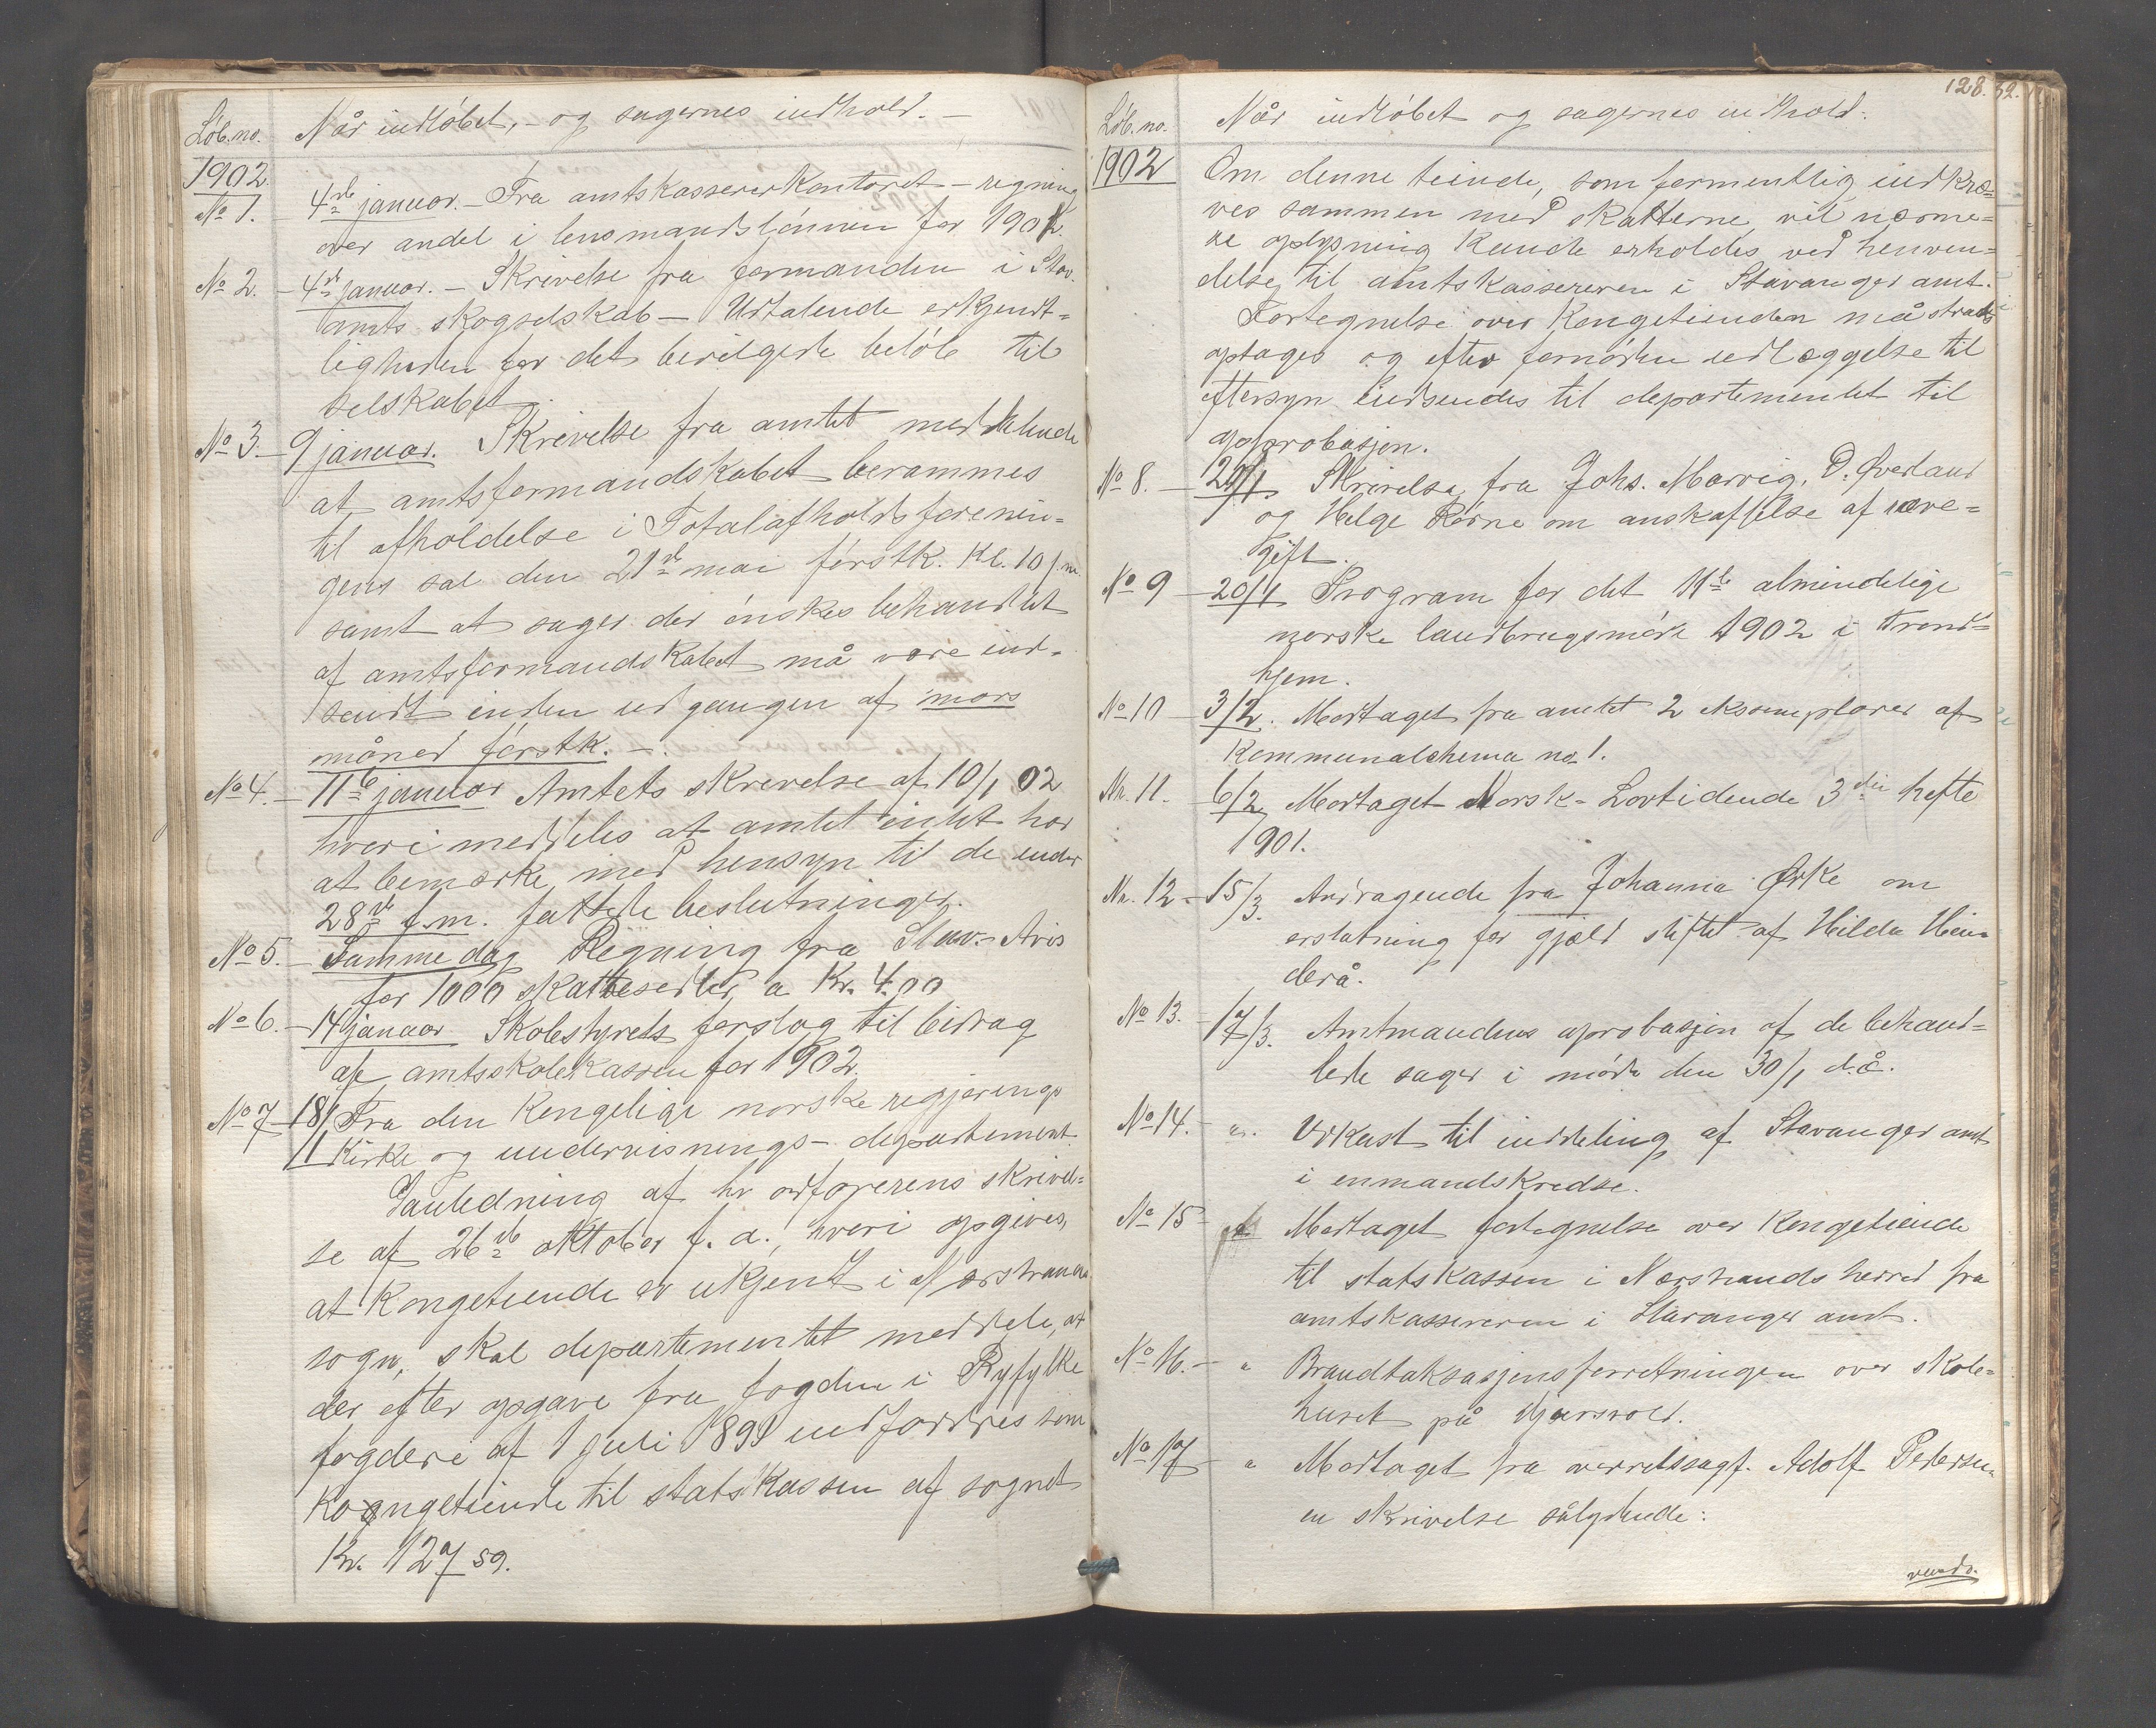 Løb.no. Når indløbet, - og sagernes indhold. -
1902.
No 1. - 4de januar. - Fra amtskassererkontoret - regning
over andel i lensmandslønnen for 1902.
No 2. - 4de januar. - Skrivelse fra formanden i Stav.
amts skogselskab - Udtalende erkjendt=
ligheden for det bevilgede beløb til
selskabet.
No 3. - 9 januar. Skrivelse fra amtet meddelende
at amtsformandskabet berammes
til afholdelse i Totalafholdsforenin=
gens sal den 21de mai førstk. Kl. 10 f.m.
samt at sager der ønskes behandlet
af amtsformandskabet må være ind=
sendt inden udgangen af mars
måned førstk. -
No 4. - 11te januar Amtets skrivelse af 10/1 02
hvori meddeles at amtet intet har
at bemærke med hensyn til de under
28de f.m. fattede beslutninger.
No 5. - Samme dag Regning fra Stav. Avis
for 1000 skattesedler a Kr. 4.00
No 6. - 14 januar Skolestyrets forslag til bidrag
af amtsskolekassen for 1902.
No 7 - 18/1 Fra den Kongelige norske regjerings
Kirke og undervisnings- departement.
I anledning af hr ordførerens skrivel=
se af 26de oktober f. a., hvori opgives,
at Kongetiende er ukjent i Nærstrands
sogn, skal departementet meddele, at
der efter opgave fra fogden i Ryfylke
fogderi af 1 juli 1891 indfordres som
Kongetiende til statskassen af sognet
Kr. 127,59.
128. 52.
Løb.no. Når indløbet og sagernes indhold.
1902 Om denne tiende, som formentlig indkræ=
ves sammen med skatterne, vil nærme=
re oplysning kunde erholdes ved henven=
delse til amtskassereren i Stavanger amt.
Fortegnelse over Kongetienden må straks
optages og efter fornøden udlæggelse til
eftersyn indsendes til departementet til
approbasjon.
No 8. - 20/1 Skrivelse fra Johs. Marvig, D. Øverland
og Helge Rørne om anskaffelse af ræve=
gift.
No 9 - 20/1 Program for det 11te almindelige
norske landbrugsmøde 1902 i Trond=
hjem.
No 10 - 3/2. Modtaget fra amtet 2 eksemplarer af
Kommunalskema no 1.
Nr. 11. - 6/2 Modtaget Norsk-Lovtidende 3die hefte
1901.
Nr. 12 - 15/3. Andragende fra Johanna Ørke om
erstatning for gjæld stiftet af Hilda Hein
derå.
No 13. - 17/3. Amtmandens aprobasjon af de behand=
lede sager i møde den 30/1 d.å.
No 14. - " Udkast til inddeling af Stavanger amt
i enmandskredse.
No 15 - Modtaget fortegnelse over Kongetiende
til statskassen i Nærstrands herred fra
amtskassereren i Stavanger amt.
No 16. - " Brandtaksasjonsforretningen over skole=
huset på Gjersvold.
No 17 - " Modtaget fra overretssagf. Adolf Pedersen
en skrivelse sålydende:
vend.